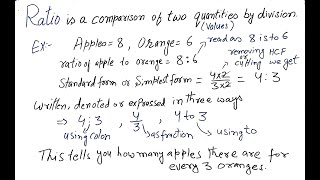 Ratio is a comparison of two quantities by division.
(Values)
Ex- Apples = 8, Orange = 6 → read as 8 is to 6
ratio of apple to orange = 8:6
removing HCF or cutting we get
Standard form or Simplest form = 4×2/3×2 = 4:3
Written, denoted or expressed in three ways
⇒ 4:3, 4/3, 4 to 3
using colon as fraction using to
This tells you how many apples there are for
every 3 oranges.